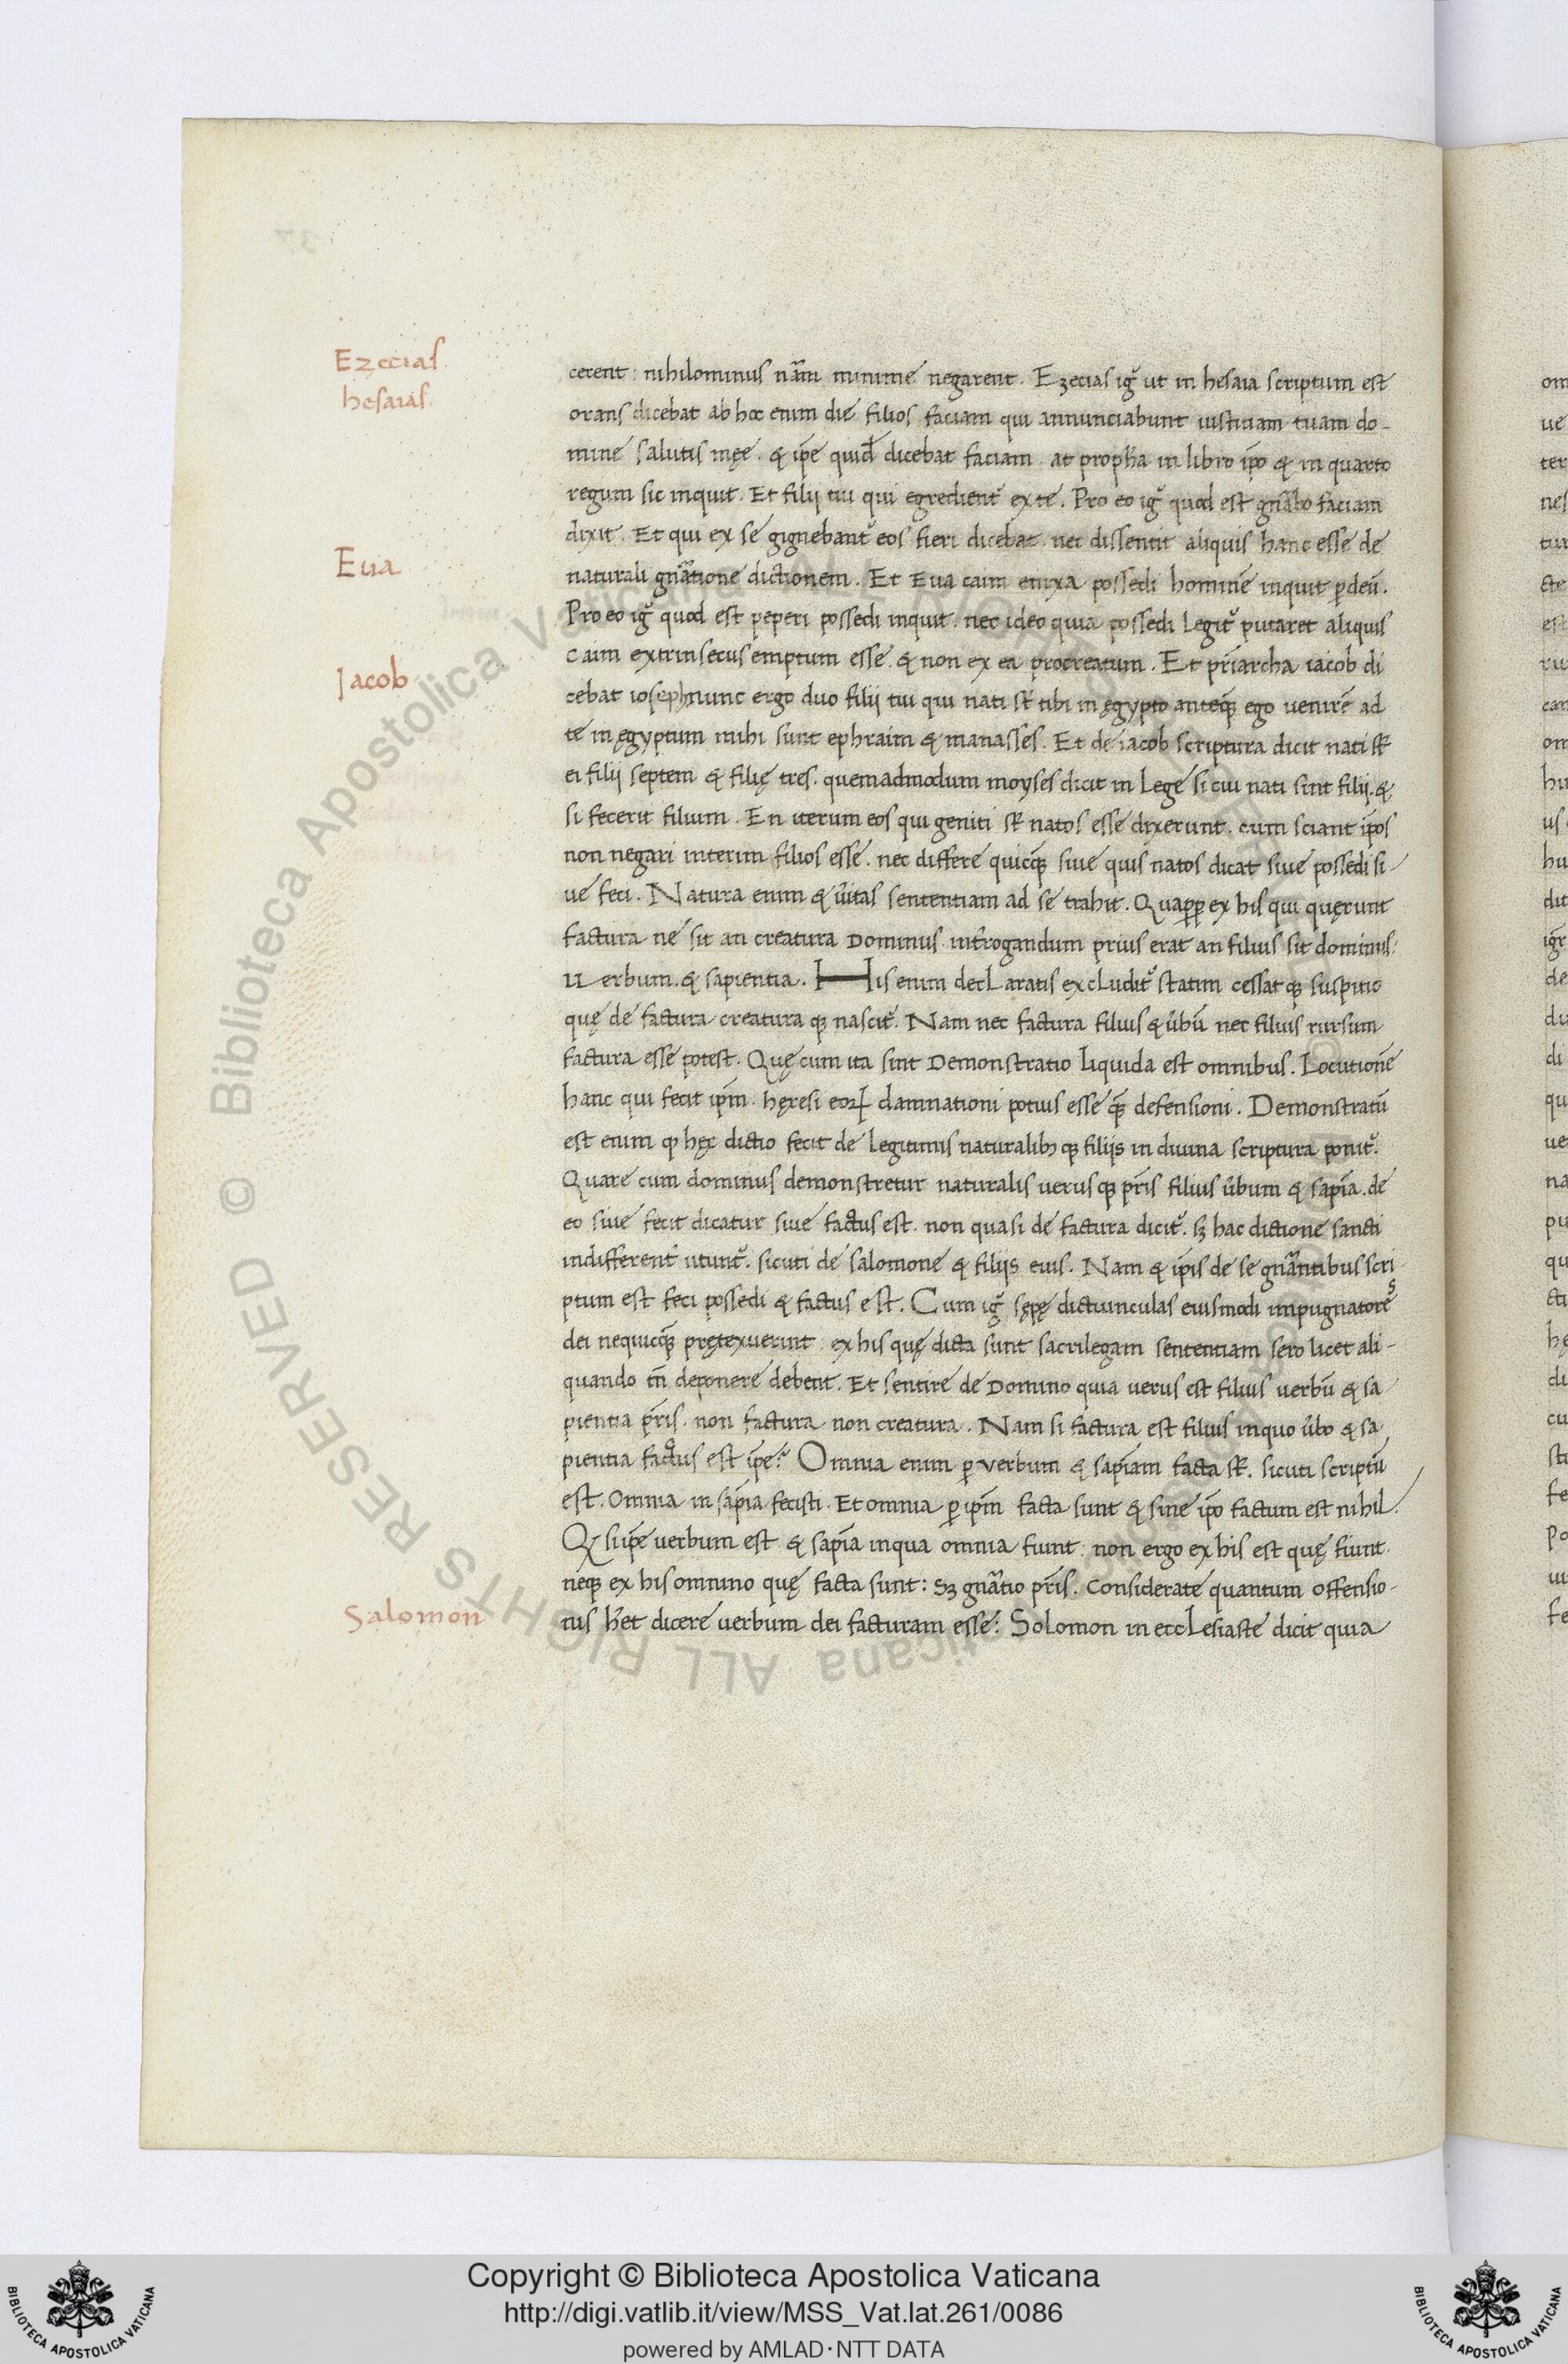 Ezecias
hesaias
cerent: nihilominus nãm minime negarent. Ezecias ig̃ ut in hesaia scriptum est
orans dicebat ab hoc enim die filios faciam qui annunciabunt iusticiam tuam do-
mine salutis męę. & ip̃e quid̃ dicebat faciam. at proph̃a in libro ip̃o & in quarto
regum sic inquit. Et filij tui qui egredient̃ ex te. Pro eo ig̃ quod est gñabo faciam
dixit. Et qui ex se gignebant̃ eos fieri dicebat. nec dissentit aliquis hanc esse de
Eua
naturali gñatione dictionem. Et Eua caim enixa possedi hominẽ inquit p̱ deũ.
Pro eo ig̃ quod est peperi possedi inquit. nec ideo quia possedi Legit̃ putaret aliquis
caim extrinsecus emptum esse. & non ex ea procreatum. Et pr̃iarcha iacob di
Jacob
cebat ioseph nunc ergo duo filij tui qui nati st̃ tibi in ęgypto anteq̃ ego uenirẽ ad
te in ęgyptum mihi sunt ephraim & manasses. Et de iacob scriptura dicit nati st̃
ei filij septem & filię tres. quemadmodum moyses dicit in Lege si cui nati sint filij. &
si fecerit filium. En iterum eos qui geniti st̃ natos esse dixerunt. cum sciant ip̃os
non negari interim filios esse. nec differe quicq̃ siue quis natos dicat siue possedi si-
ue feci. Natura enim & ũitas sententiam ad se trahit. Quap̱p̱ ex his qui quęrunt
factura ne sit an creatura Dominus. int̃rogandum prius erat an filius sit dominus.
uerbum. & sapientia. His enim decLaratis excLudit̃ statim cessatq; suspitio
quę de factura creaturaq; nascit̃. Nam nec factura filius & ũbũ nec filius rursum
factura esse potest. Quę cum ita sint Demonstratio Liquida est omnibus. Locutionẽ
hanc qui fecit ip̃m. hęresi eoꝝ damnationi potius esse q̃ defensioni. Demonstratũ
est enim ꝙ hęc dictio fecit de Legitimis naturalib;q; filijs in diuina scriptura ponit̃.
Quare cum dominus demonstretur naturalis uerusq; pr̃is filius ũbum & sap̃ia. de
eo siue fecit dicatur siue factus est. non quasi de factura dicit̃. sꝫ hac dictione sancti
indifferent̃ utunt̃. sicuti de salomone & filijs eius. Nam & ip̃is de se gñantibus scri
ptum est feci possedi & factus est. Cum ig̃ sępę dictiunculas eiusmodi impugnatores
dei nequicq̃ prętexuerint. ex his quę dicta sunt sacrilegam sententiam sero licet ali-
quando tñ deponere debent. Et sentire de Domino quia uerus est filius uerbũ & sa
pientia pr̃is. non factura non creatura. Nam si factura est filius in quo ũbo & sa
pientia factus est ip̃e? Omnia enim p̱ verbum & sap̃iam facta st̃. sicuti scriptũ
est. Omnia in sap̃ia fecisti. Et omnia p̱ ip̃m facta sunt & sine ip̃o factum est nihil.
Q̃ si ip̃e uerbum est & sap̃ia in qua omnia fiunt: non ergo ex his est quę fiunt.
neq; ex his omnino quę facta sunt: sꝫ gñatio pr̃is. Considerate quantum offensio-
Salomon
nis h̃et dicere uerbum dei facturam esse: Solomon in eccLesiaste dicit quia
Copyright © Biblioteca Apostolica Vaticana
http://digi.vatlib.it/view/MSS_Vat.lat.261/0086
powered by AMLAD·NTT DATA